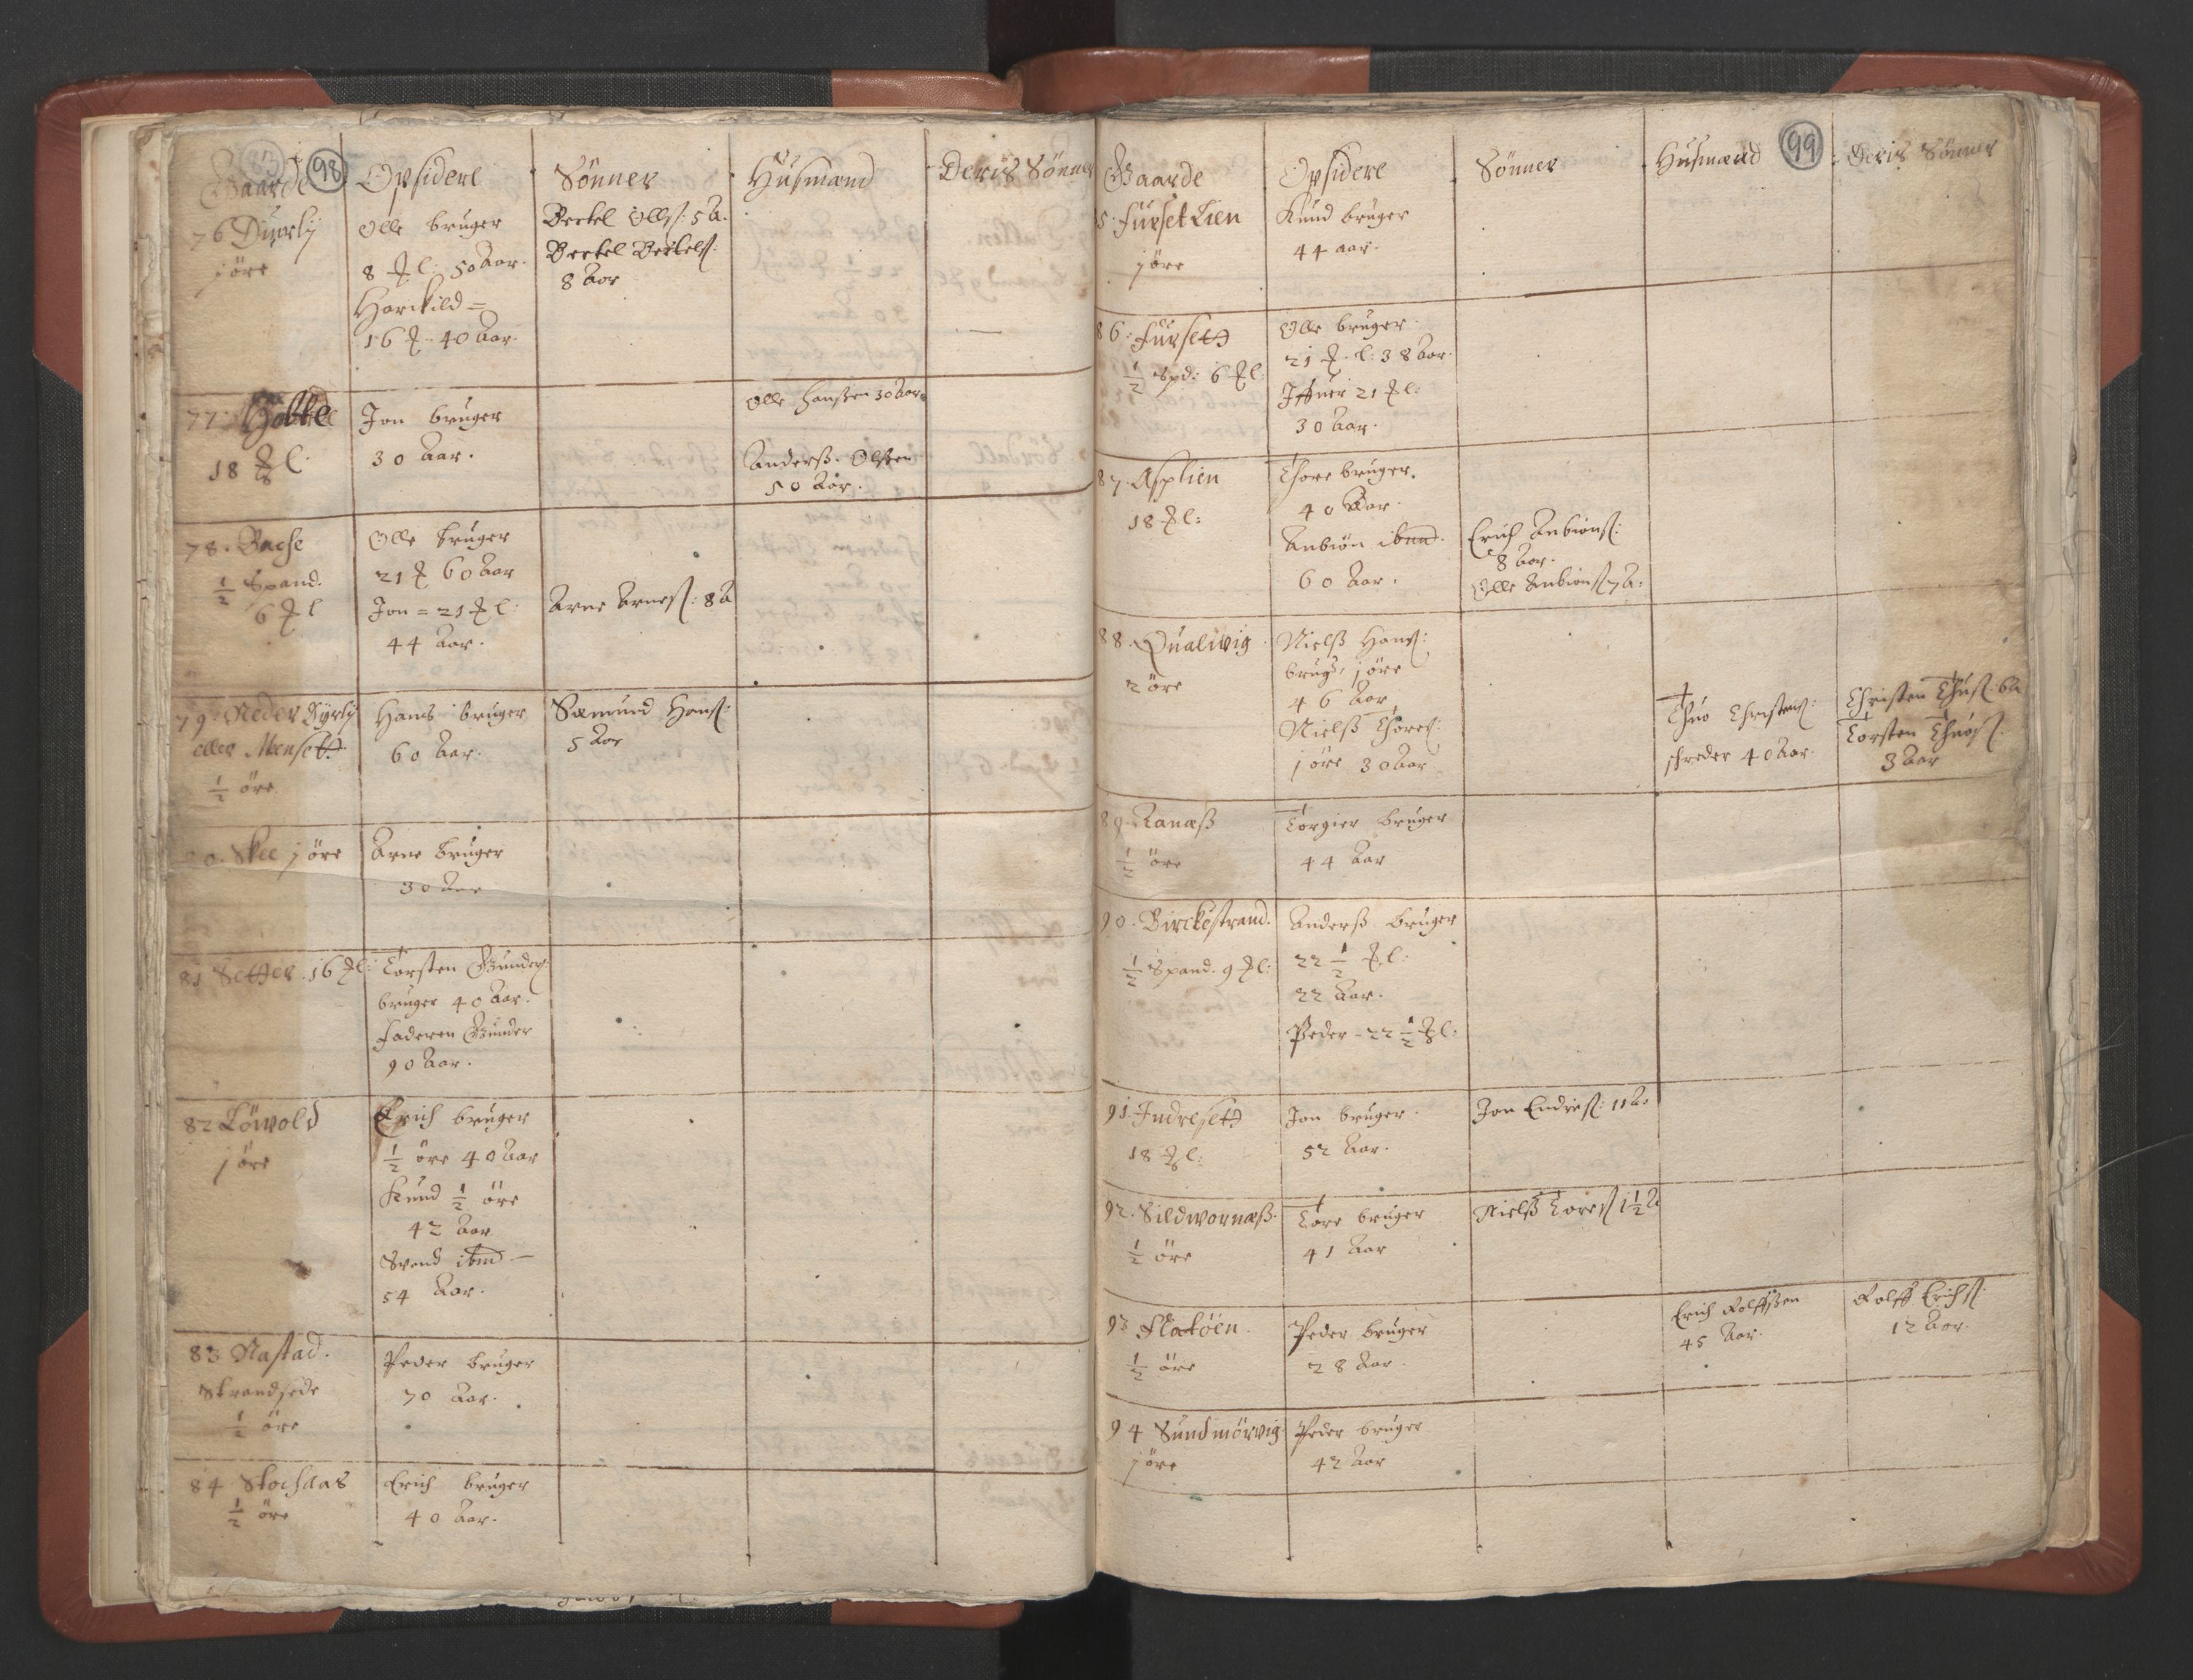 98
Gaarde Opsidere Sønner Husmænd Deris Sønner
76 Dyrlj
j øre
Olle bruger
8 ℔ l: 50 Aar.
Harckild =
16 ℔. 40 Aar.
Berkel Olls: 5 A.
Berkel Berkels:
8 Aar
77.
18 ℔ l.
Jon bruger
30 Aar.
Olle Hanssen 30 Aar.
Anderss. Olssen
50 Aar.
78. Bache
½ Spand.
6 ℔ l
Olle bruger
21 ℔ 60 Aar
Jon = 21 ℔ l:
44 Aar.
Arne Arness: 8 A
79. Neder Dyrlj
eller Mensett
½ øre
Hans bruger
60 Aar.
Sæmund Hanss:
5 Aar
80. Skee j øre
Arne bruger
30 Aar
81 Setter. 16 ℔ l:
Torsten Gunders:
bruger 40 Aar.
Faderen Gunder
90 Aar.
82 Löwold
j øre
Erich bruger
½ øre 40 Aar
Knud ½ øre
42 Aar
Svend ibmd —
54 Aar.
83 Nastad.
Strandsede
½ øre
Peder bruger
70 Aar.
84 Stochaas
½ øre
Erich bruger
40 Aar.
99
Gaarde Opsidere Sønner Husmænd Deris Sønner
5. Furset Lien
j øre
Knud bruger
44 aar.
86. Fursett
½ Spd: 6 ℔ l:
Olle bruger
21 ℔. l: 38 Aar.
Iffuer 21 ℔ l:
30 Aar.
87. Asplien
18 ℔ l:
Thore bruger.
40 Aar.
Anbiøn ibmd.
60 Aar.
Erich Anbiøns:
8 Aar.
Olle Anbiøns 7 A:
88. Qualwig
2 øre
Nielss Hans:
bruger j øre
46 Aar
Nielss Thores:
j øre 30 Aar
Thuo Christens:
schreder 40 Aar.
Christen Thus: 6 A
Torsten Thuos:
3 Aar
89. Ranæss
½ øre
Torgier bruger
44 Aar
90. Birckestrand.
½ Spand. 9 ℔ l:
Anderss bruger
22 ½ ℔ l:
22 Aar.
Peder - 22 ½ ℔ l:
91. Indresett
18 ℔ l:
Jon bruger.
52 Aar.
Jon Endress: 11 A.
92. Sildwornæss.
½ øre
Tore bruger
41 Aar
Nielss Tores 1½ A
93 Flatöen.
½ øre
Peder bruger
28 Aar.
Erich Rolffssen
45 Aar.
Rolff Erichs:
12 Aar.
94 Sundmörwig
j øre
Peder bruger
42 Aar